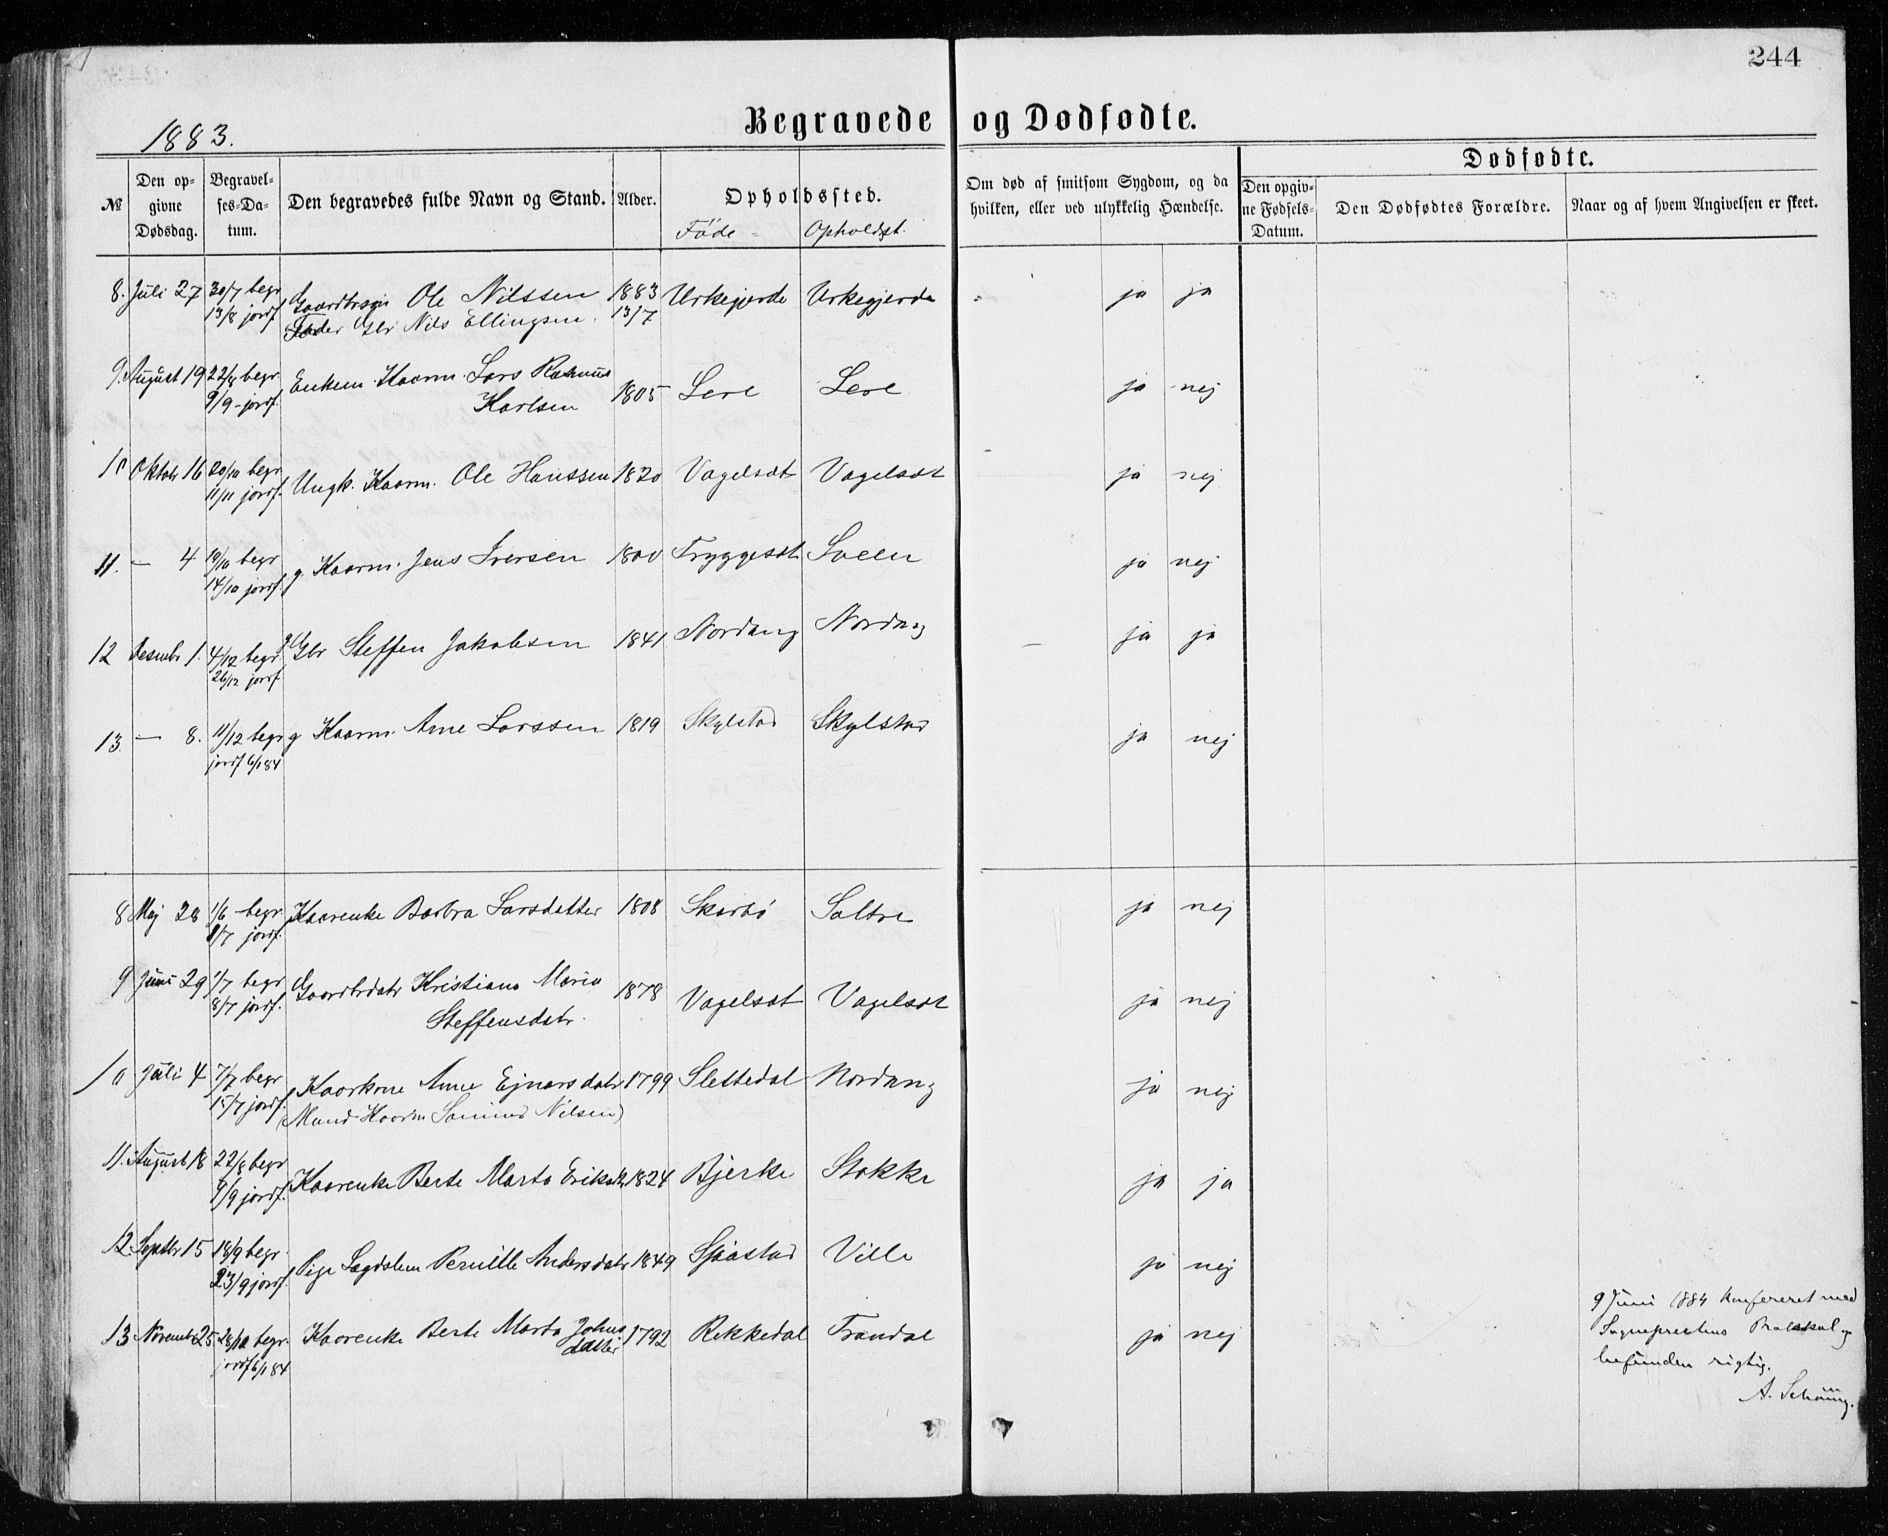 244
Begravede og Dødfødte.
1883.
№
Den opgivne Dødsdag.
Begravelses-Datum.
Den begravedes fulde Navn og Stand.
Alder.
Opholdssted.
Føde- Opholdsst.
Om død af smitsom Sygdom, og da hvilken, eller ved ulykkelig Hændelse.
Dødfødte.
Den opgivne Fødsels-Datum.
Den Dødfødtes Forældre.
Naar og af hvem Angivelsen er skeet.
8. Juli 27 30/7 begr Gaardbrsøn Ole Nilssen 1883 Urkegjerde Urkegjerde ja ja
13/8 jordf Fader Gbr Nils Ellingsen. 13/7
9. August 19 22/8 begr Enkem. Kaarm. Lars Rasmus 1805 Leve Leve ja nej
9/9 - jordf. Karlsen
10 Oktobr 16 20/10 begr Ungk. Kaarm. Ole Hanssen 1820 Vagelsæt Vagelsæt ja nej
11/11 jordf.
11. — 4 begr g. Kaarm. Jens Iversen 1800 Tryggesæt ja nej
14/10 jordf.
12 Desembr 1. 4/12 begr g Gbr Steffen Jakobsen 1841 Nordang Nordang — ja ja
26/12 jordf
13 — 8. 11/12 begr g Kaarm. Arne Larssen 1819 Skylstad Skylstad ja nej
jordf 6/1 84
8 Maj 28 1/6 - begr Kaarenke Barbra Larsdatter 1808 Skarbø Saltre ja nej
8/7 jordf.
9 Juni 29 1/7 begr Gaardbrdatr Kristiane Maria 1878 Vagelsæt Vagelsæt ja nej
8/7 jordf. Steffensdatr.
10 Juli 4 7/7 begr Kaarkone Anne Ejnarsdatr 1799 Slettedal Nordang ja nej
15/7 jordf. (Mand Kaarm Nilsen)
11. August 18 22/8 begr Kaarenke Berte Marta Eriksdtr 1824 Bjerke Stokke ja ja
9/9 jordf.
12. Septbr 15 18/9 begr. Pige Lægdslem Pernille Andersdatr 1849 Sjåstad Ville ja nej
23/9 jordf.
13 Novembr 25 begr. Kaarenke Berte Marta Johns 1792 Rekkedal Trandal ja nej
jordf 6/1 84 datter
9 Juni 1884 Konfereret med
Sogneprestens Protokol og
befunden rigtig.
A. Schöning.